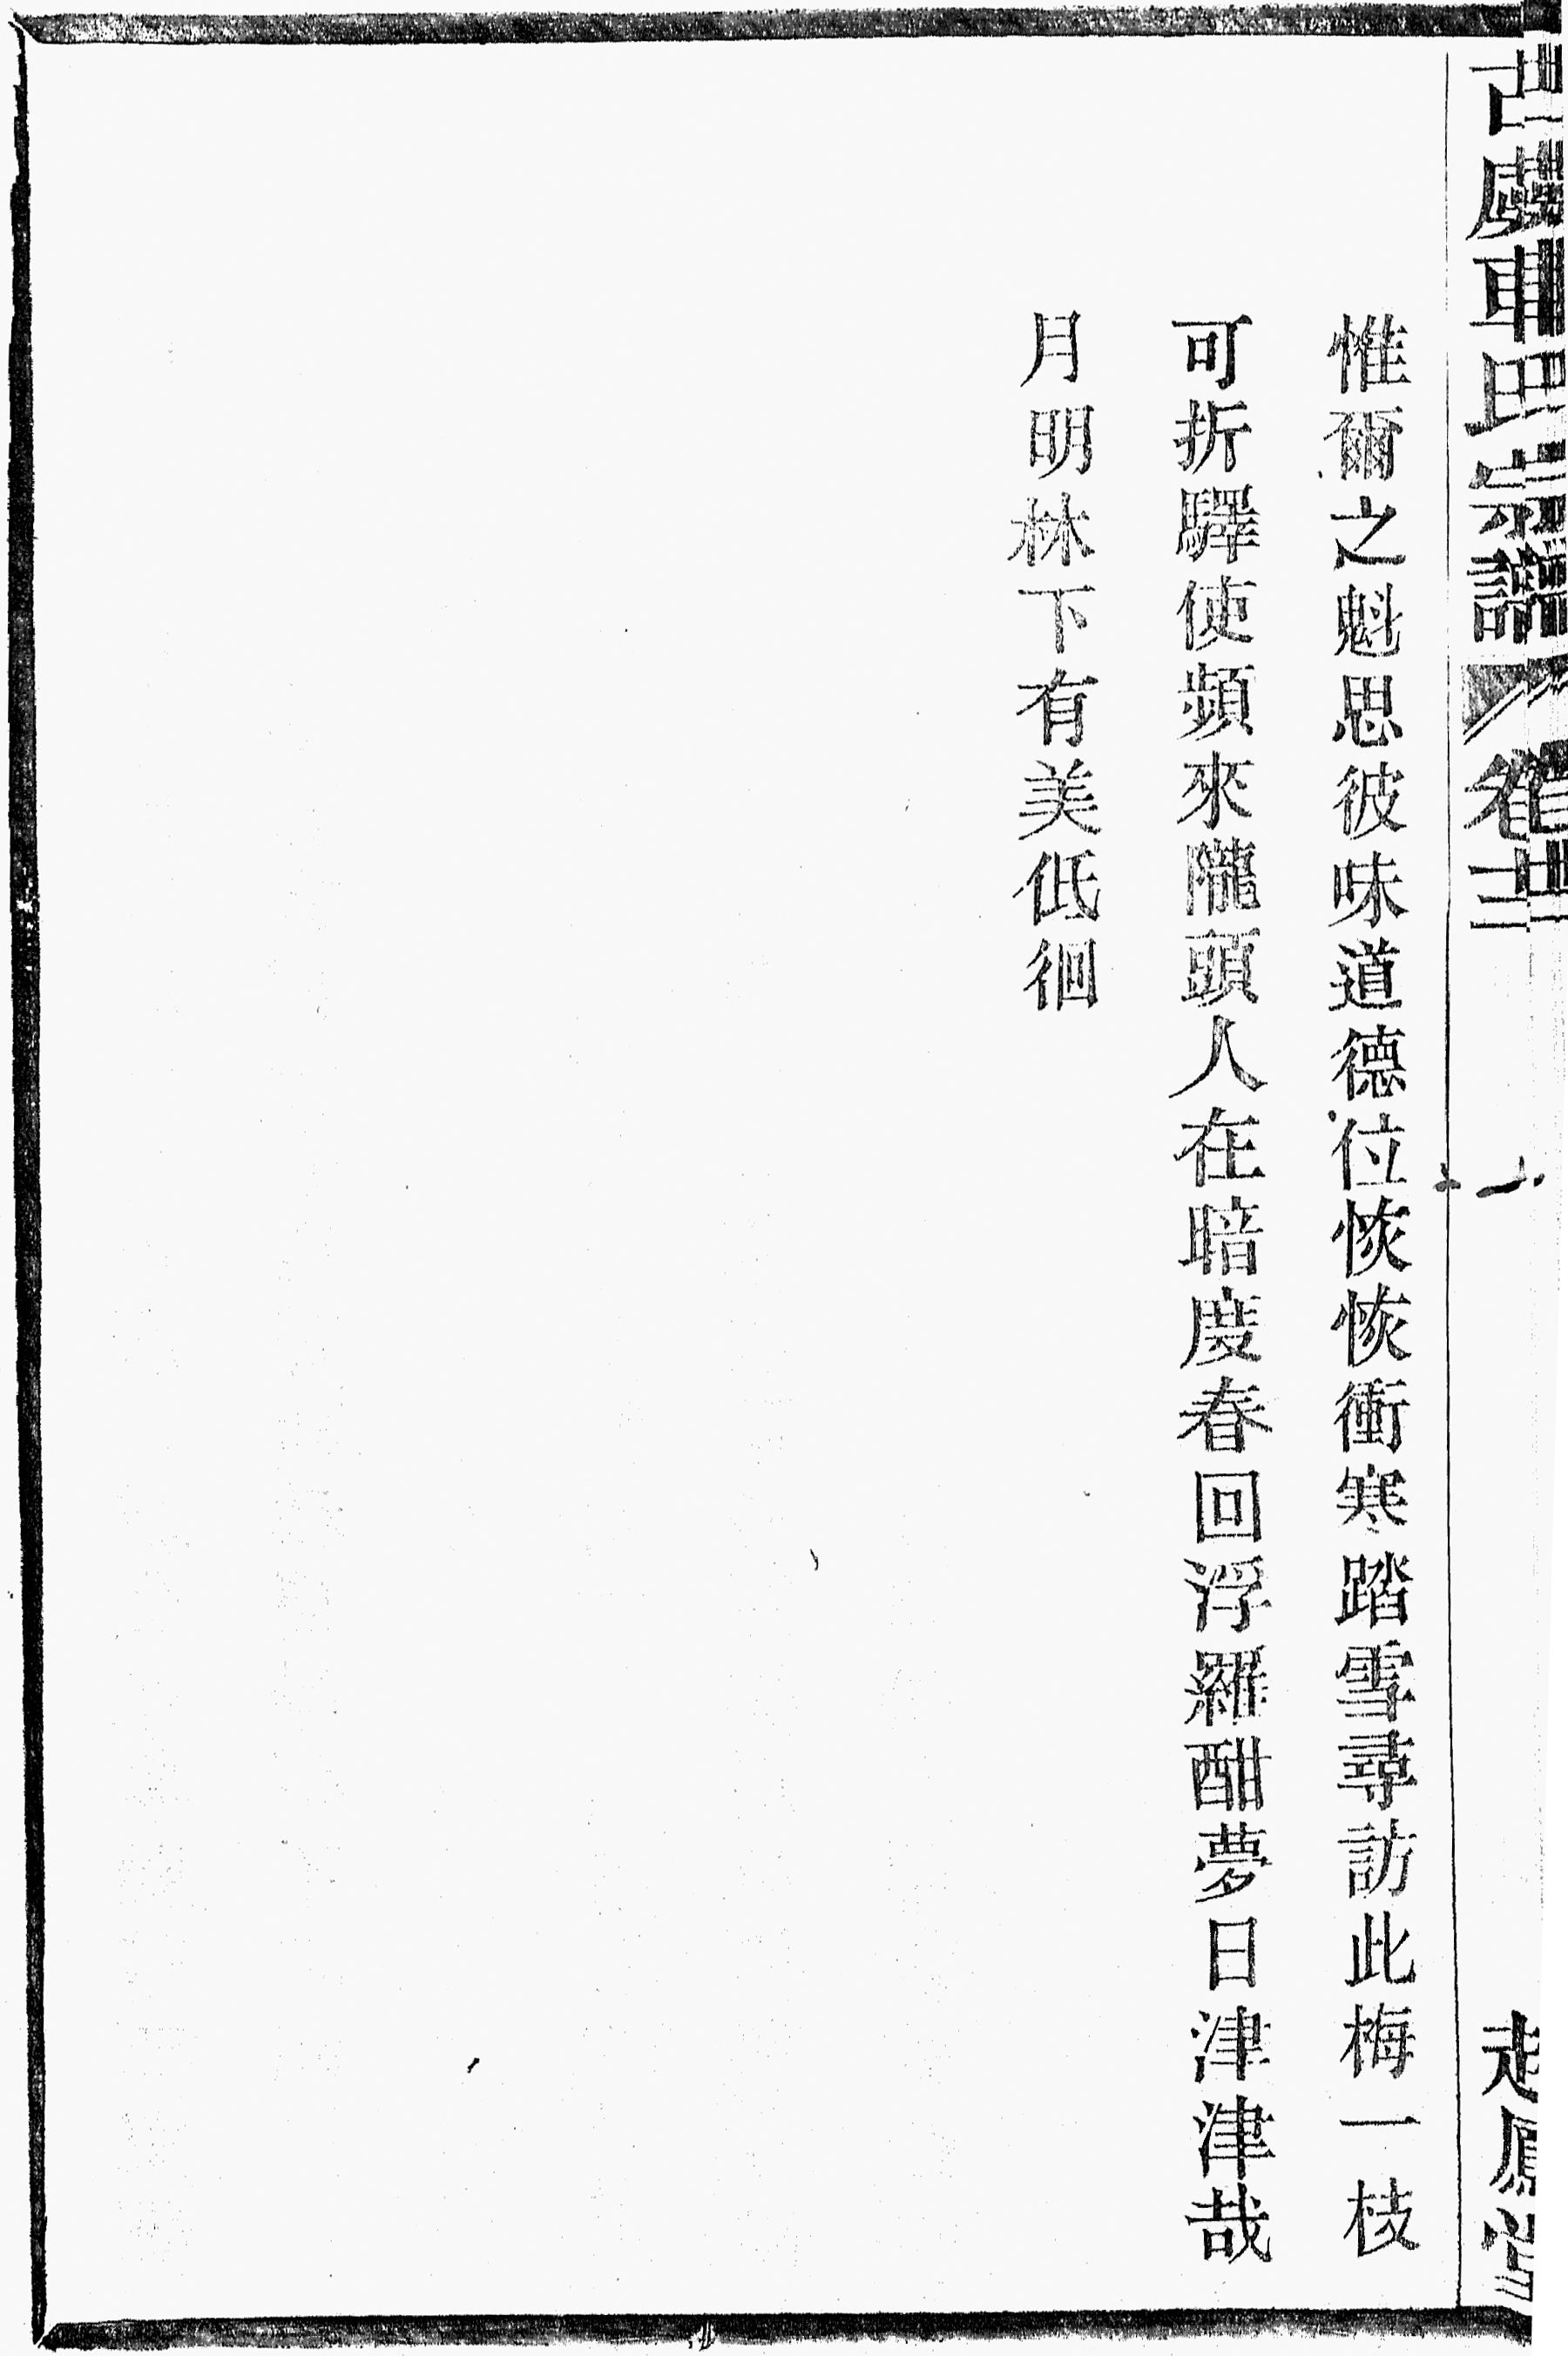 惟爾之魁思彼味道德位恢恢衝寒踏雪尋訪此梅一枝
可折驛使頻來隴頭人在暗度春回浮羅酣夢日津津哉
月明林下有美低徊